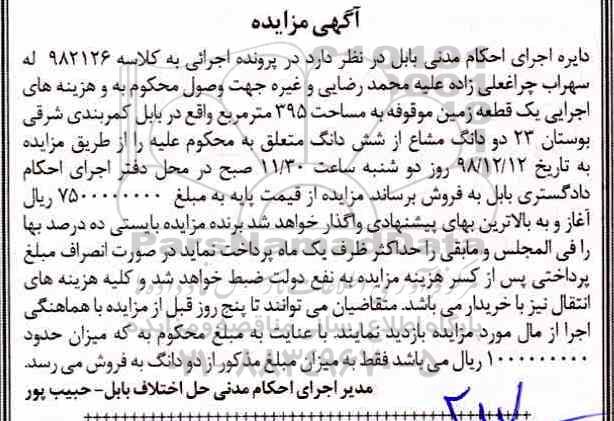 آگهی مزایده
دایره اجرای احکام مدنی بابل در نظر دارد در پرونده اجرائی به کلاسه ۹۸۲۱۲۶ له
سهراب چراغعلی زاده علیه محمد رضایی و غیره جهت وصول محکوم به و هزینه های
اجرایی یک قطعه زمین موقوفه به مساحت ۳۹۵ مترمربع واقع در بابل کمربندی شرقی
بوستان ۲۳ دو دانگ مشاع از شش دانگ متعلق به محکوم علیه را از طریق مزایده
به تاریخ ۹۸/۱۲/۱۲ روز دو شنبه ساعت ۱۱/۳۰ صبح در محل دفتر اجرای احکام
دادگستری بابل به فروش برساند. مزایده از قیمت پایه به مبلغ ۷۵۰۰۰۰۰۰۰۰ ریال
آغاز و به بالاترین بهای پیشنهادی واگذار خواهد شد برنده مزایده بایستی ده درصد بها
را فی المجلس و مابقی را حداکثر ظرف یک ماه پرداخت نماید در صورت انصراف مبلغ
پرداختی پس از کسر هزینه مزایده به نفع دولت ضبط خواهد شد و کلیه هزینه های
انتقال نیز با خریدار می باشد. متقاضیان می توانند تا پنج روز قبل از مزایده با هماهنگی
اجرا از مال مورد مزایده بازدید نمایند. با عنایت به مبلغ محکوم به که میزان حدود
۱۰۰۰۰۰۰۰۰۰ ریال می باشد فقط به میزان مبلغ مذکور از دو دانگ به فروش می رسد.
مدیر اجرای احکام مدنی حل اختلاف بابل- حبیب پور